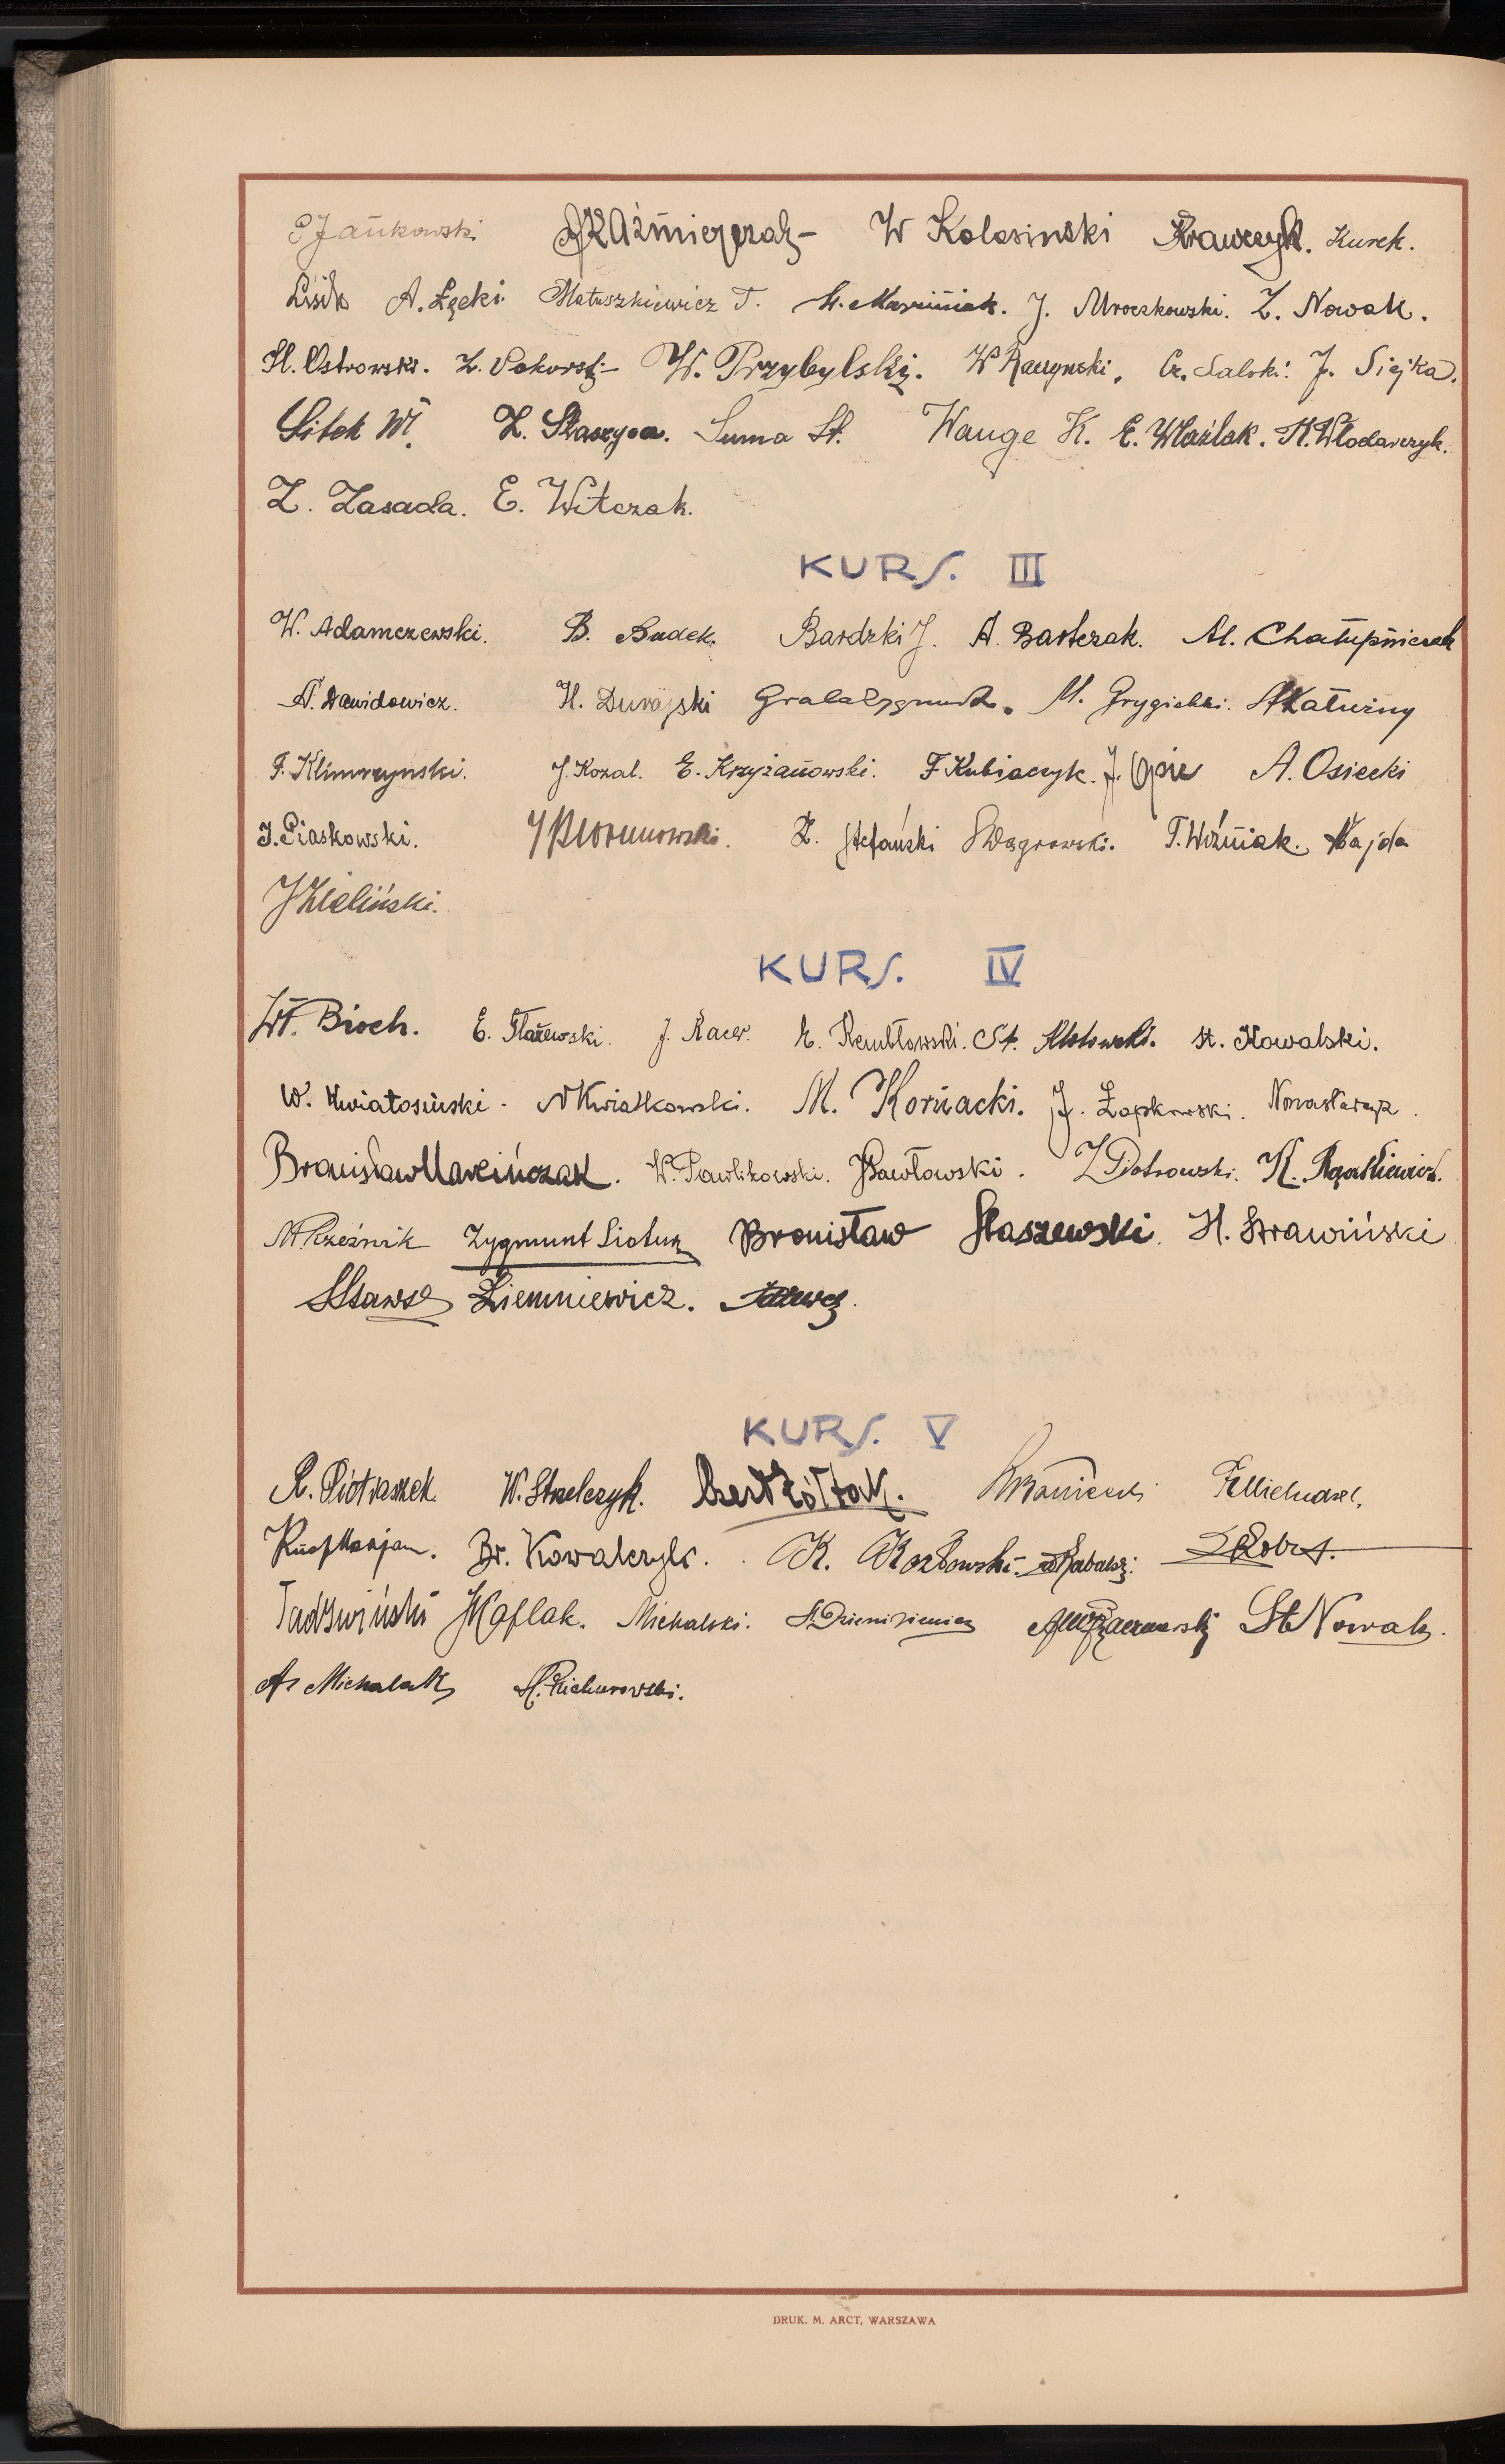 Jańkowski Kaźmierczak W Kolosinski Krawczyk. Kurek.
Lisik A. Łęcki Matuszkiewicz T. J. Mroczkowski. Z. Nowak.
H. Ostrowski. Z. W. Przybylski. W Raczynski. Cz. Salski. J. Siejka.
Sitek Wł. Z. Staszyca. Suma St. Wange K. E. Wlaźlak. K. Włodarczyk.
Z. Zasada. E. Witczak.
KURS. III
W. Adamczewski. B. Badek. Bardzki J. A. Bartczak. Al. Chałupniczak
A. Dawidowicz. H. Durajski Grala Zygmunt. M. Grygielski. Katuziny
F. Klimczynski. J. Kozal. E. Krzyżanowski. F Kubiaczyk. J. Opic A. Osiecki
J. Piaskowski. J Piorunowski. Z. Stefański S Wągrowski. T. Woźniak. Wajda
J Zieliński.
KURS. IV
Wł. Bioch. E. Flażewski. J. Kacer. E. Rembłowski. St. Klotowski. St. Kowalski.
W. Kwiatosiński. N Kwiatkowski. M. Kornacki. J. Łapkowski. Nowastarczyk.
Bronisław Marcińczak. W. Pawlikowski. J Pawłowski. Z Piotrowski. K. Rgatkiewicz.
M Rzeźnik Zygmunt Siotuk Bronisław Staszewski. H. Strawiński
Ziemniewicz.
KURS. V
R. Piotraszek. W. Strzelczyk. Żółtak.
Marjan. Br. Kowalczyk. K. Kozłowski. Robert.
Tadzwiński J Kaflak. Michalski. St Nowak.
A. Michalak H. Pichurowski.
DRUK. M. ARCT, WARSZAWA